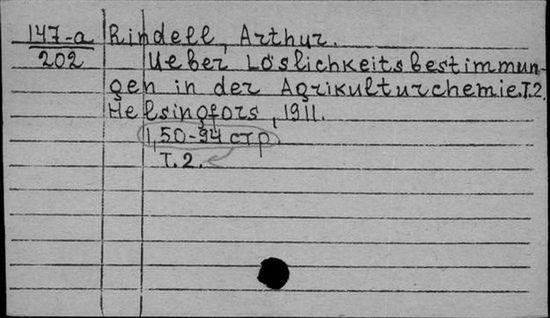 147-a Rindell, Arthur.
202 Ueber Löslichkeitsbestimmun-
gen in der Agrikulturchemie.T.2.
Helsingfors, 1911.
1,50-94 стр
T.2.